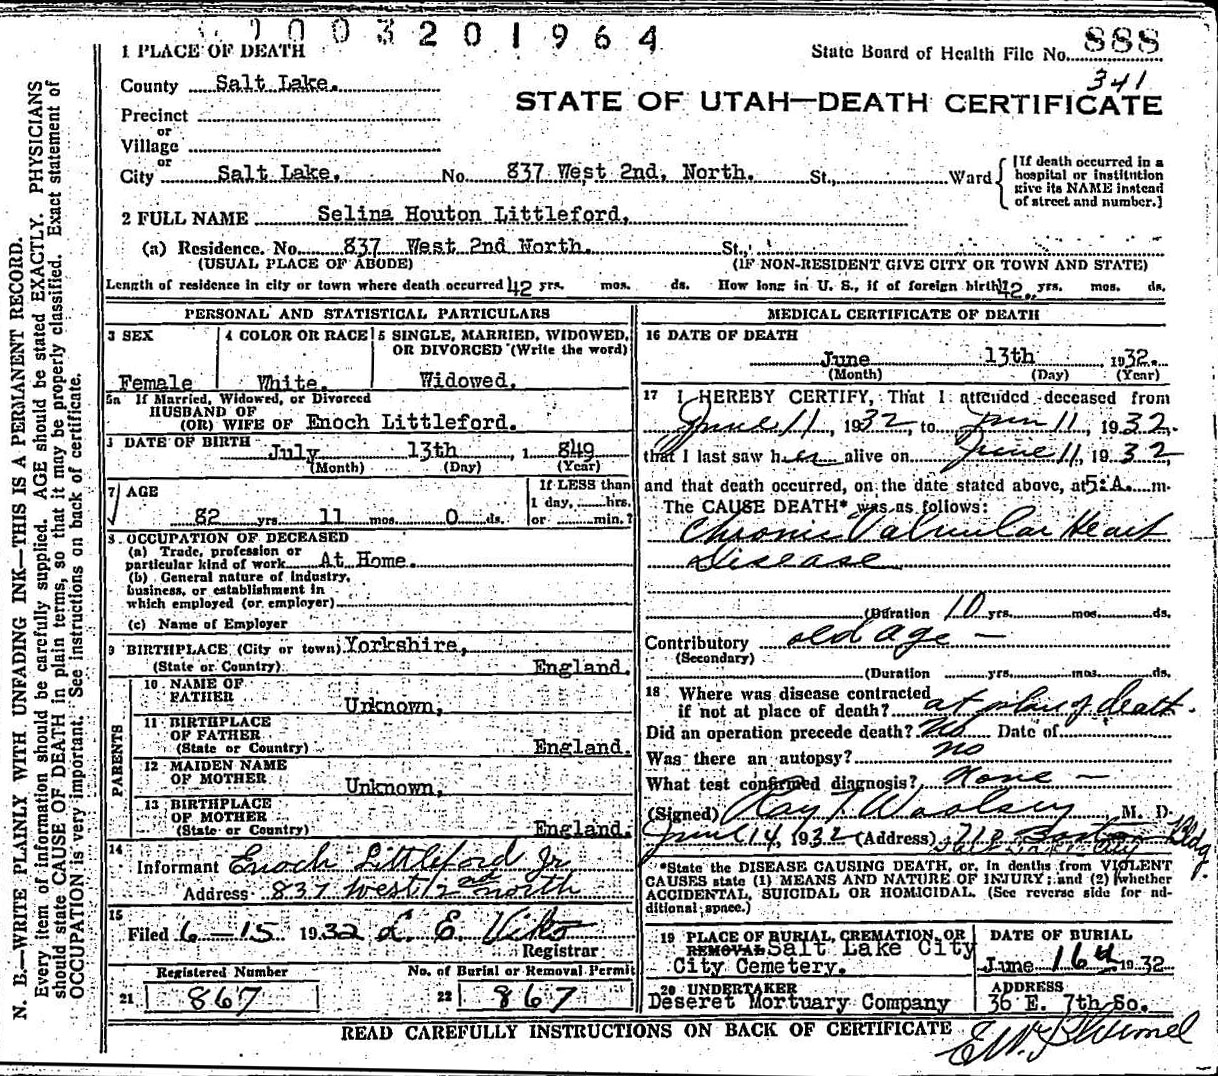 1003201964
1 PLACE OF DEATH
State Board of Health File No. 888
341
County Salt Lake.
STATE OF UTAH—DEATH CERTIFICATE
Precinct
or
Village
or
City Salt Lake. No. 837 West 2nd, North. St., Ward
[If death occurred in a
hospital or institution
give its NAME instead
of street and number.]
2 FULL NAME Selina Houton Littleford,
(a) Residence. No. 837 West 2nd North. St.,
(USUAL PLACE OF ABODE) (IF NON-RESIDENT GIVE CITY OR TOWN AND STATE)
Length of residence in city or town where death occurred 42 yrs. mos. ds. How long in U. S., if of foreign birth 42 yrs. mos. ds.
PERSONAL AND STATISTICAL PARTICULARS
3 SEX
Female
4 COLOR OR RACE
White.
5 SINGLE, MARRIED, WIDOWED,
OR DIVORCED (Write the word)
Widowed.
5a If Married, Widowed, or Divorced
HUSBAND OF
(OR) WIFE OF Enoch Littleford.
DATE OF BIRTH
July 13th, 1849
(Month) (Day) (Year)
7 AGE
82 yrs. 11 mos. 0 ds.
If LESS than
1 day, hrs.
or min.?
8. OCCUPATION OF DECEASED
(a) Trade, profession or
particular kind of work At Home.
(b) General nature of industry,
business, or establishment in
which employed (or employer)
(c) Name of Employer
9 BIRTHPLACE (City or town) Yorkshire,
(State or Country) England.
PARENTS
10 NAME OF
FATHER Unknown,
11 BIRTHPLACE
OF FATHER
(State or Country) England.
12 MAIDEN NAME
OF MOTHER Unknown,
13 BIRTHPLACE
OF MOTHER
(State or Country) England.
14
Informant Enoch Littleford Jr
Address 837 West 2nd north
15
Filed 6-15 1932 L. E. Viko
Registrar
Registered Number
21 867
No. of Burial or Removal Permit
22 867
MEDICAL CERTIFICATE OF DEATH
16 DATE OF DEATH
June 13th 1932.
(Month) (Day) (Year)
17 I HEREBY CERTIFY, That I attended deceased from
June 11, 1932, to Jun 11, 1932,
that I last saw her alive on June 11, 1932,
and that death occurred, on the date stated above, at 5:A. m.
The CAUSE DEATH* was as follows:
Chronic Valvular Heart
Disease
(Duration 10 yrs. mos. ds.
Contributory old age —
(Secondary)
(Duration yrs. mos. ds.
18 Where was disease contracted
if not at place of death? at place of death.
Did an operation precede death? No Date of
Was there an autopsy? no
What test confirmed diagnosis? None —
(Signed) Ray T. Woolsey M. D.
June 14, 1932 (Address) 718 Boston Bldg.
*State the DISEASE CAUSING DEATH, or, in deaths from VIOLENT
CAUSES state (1) MEANS AND NATURE OF INJURY; and (2) whether
ACCIDENTAL, SUICIDAL OR HOMICIDAL. (See reverse side for ad-
ditional space.)
19 PLACE OF BURIAL, CREMATION, OR
REMOVAL Salt Lake City
City Cemetery.
DATE OF BURIAL
June 16th 1932
20 UNDERTAKER
Deseret Mortuary Company
ADDRESS
36 E. 7th So.
READ CAREFULLY INSTRUCTIONS ON BACK OF CERTIFICATE
N. B.—WRITE PLAINLY WITH UNFADING INK—THIS IS A PERMANENT RECORD.
Every item of information should be carefully supplied. AGE should be stated EXACTLY. PHYSICIANS
should state CAUSE OF DEATH in plain terms, so that it may be properly classified. Exact statement of
OCCUPATION is very important. See instructions on back of certificate.